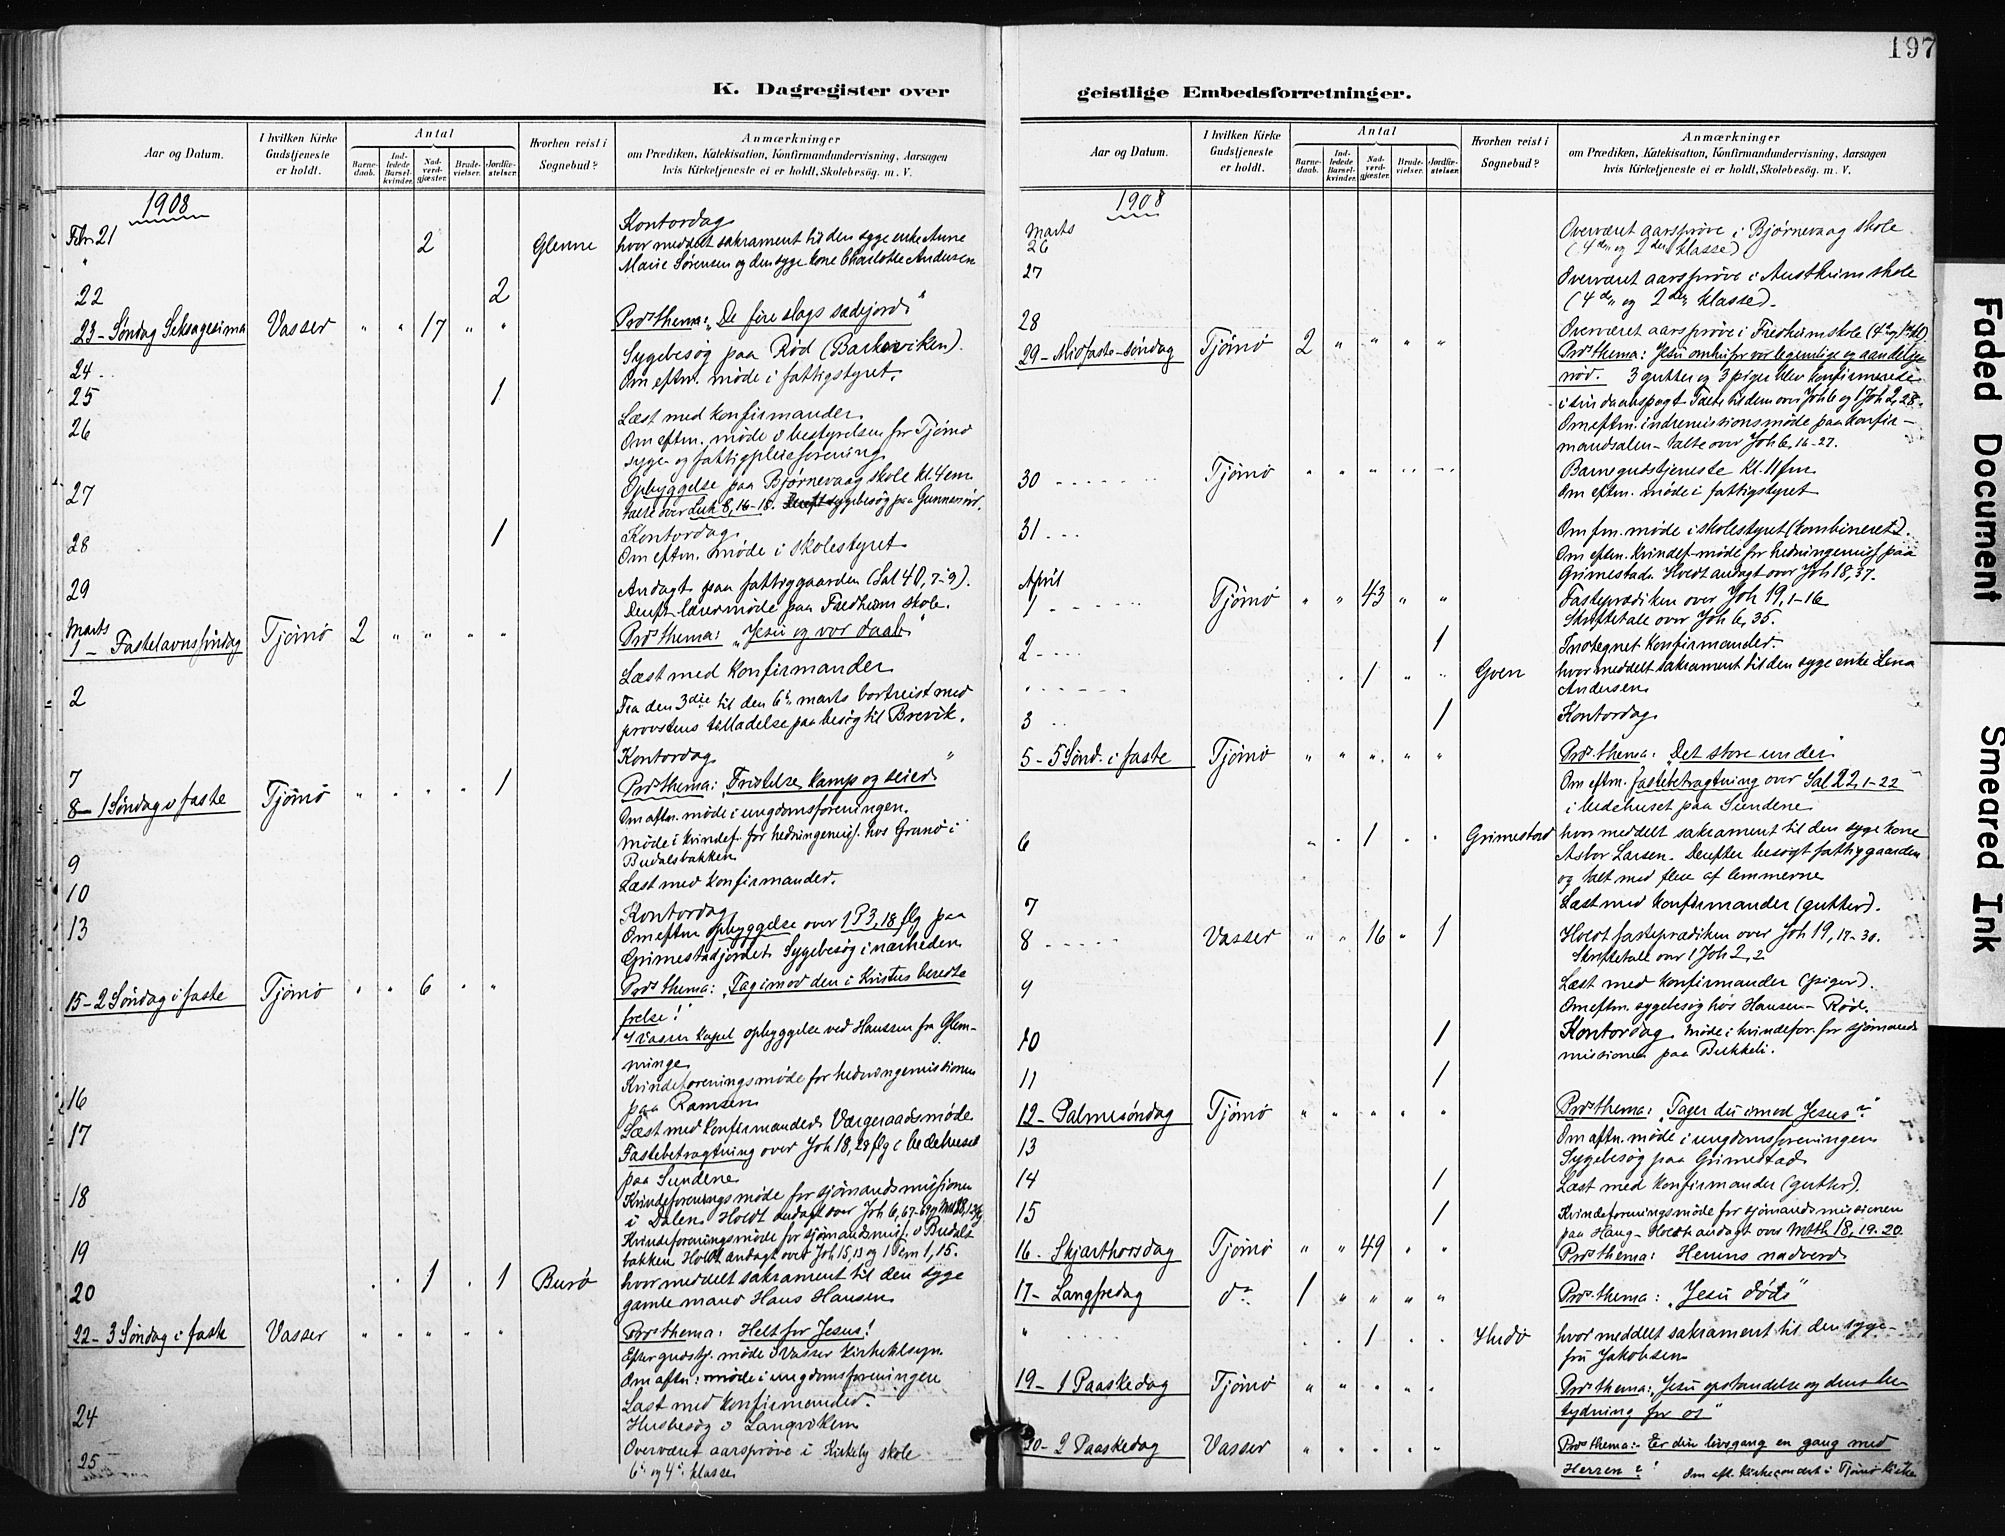 197
K. Dagregister over
Aar og Datum.
I hvilken Kirke Gudstjeneste er holdt.
Antal
Barne-daab.
Ind-ledede Barsel-kvinder.
Nad-verd-gjæster.
Brude-vielser.
Jordfæ-stelser.
Hvorhen reist i Sognebud?
Anmærkninger
om Prædiken, Katekisation, Konfirmandundervisning, Aarsagen
hvis Kirketjeneste ei er holdt, Skolebesøg. m. V.
1908
Febr. 21 Kontordag
" 2 Glenne hvor meddelt sakrament til den syge enke Anne
Marie Sørensen og den syge kone Charlotte Andersen
22 2
23 - Søndag Seksagesima Vasser " " 17 " " Præs thema: "De fire slags sædejord"
24 Sygebesøg paa Rød (Barkeviken).
Om eftm. møde i fattigstyret.
25 1
Læst med konfirmander
26 Om eftm. møde i bestyrelsen for Tjømø
syge- og fattigpleieforening
27 Opbyggelse paa Bjørnevaag skole kl. 4 em
talte over Luk 8, 16-18. sygebesøg paa
28 1 Kontordag
Om eftm. møde i skolestyret
29 Andagt paa fattiggaarden (Sal 40, 7-9).
Dereft. lærermøde paa Fredheim skole.
Marts
1 - Fastelavnssøndag Tjømø 2 " " " " Præs thema: "Jesu og vor daab"
Læst med konfirmander
2 Fra den 3die til den 6te marts bortreist med
provstens tilladelse paa besøg til Brevik.
7 Kontordag
8 - 1 Søndag i faste Tjømø " " " " 1 Præs thema: "Fristelse, kamp og seier"
Om aftn. møde i ungdomsforeningen.
9 Møde i kvindef. for hedningemis. hos Granø i
Budalsbakken
10 Læst med konfirmander.
13 Kontordag
Om eftm opbyggelse over 1 P 3, 18 flg paa
Grimestadjordet. Sygebesøg i nærheden
15 - 2 Søndag i faste Tjømø " " 6 " " Præs thema: "Tag imod den i Kristus beredte
frelse!"
I Vasser kapel opbyggelse ved Hanssen fra Glem-
minge
16 Kvindeforeningsmøde for hedningemissionen
paa Ramsen
17 Læst med konfirmander. Værgeraadsmøde
Fastebetragtning over Joh 18, 29 flg i bedehuset
paa Sundene
18 Kvindeforenings møde for sjømandsmissionen
i Dalen. Holdt andagt over Joh 6, 67-69
19 Kvindeforeningsmøde for sjømandsmis. i Budals
bakken. Holdt andagt over Joh 15, 13 og 1 Tim 1, 15.
20 " " 1 " 1 Burø hvor meddelt sakrament til den syge
gamle mand Hans Hansen
22 - 3 Søndag i faste Vasser " " " " " Præs thema: Helt for Jesus!
Efter gudstj. møde i Vasser kirketilsyn.
Om aftn: møde i ungdomsforeningen
24 Læst med konfirmander.
Husbesøg i Langviken
25 Overværet aarsprøve i Kirkeby skole
6te og 4de klasse
geistlige Embedsforretninger.
Aar og Datum.
I hvilken Kirke Gudstjeneste er holdt.
Antal
Barne-daab.
Ind-ledede Barsel-kvinder.
Nad-verd-gjæster.
Brude-vielser.
Jordfæ-stelser.
Hvorhen reist i Sognebud?
Anmærkninger
om Prædiken, Katekisation, Konfirmandundervisning, Aarsagen
hvis Kirketjeneste ei er holdt, Skolebesøg. m. V.
1908
Marts
26 Overværet aarsprøve i Bjørnevaag skole
(4de og 2den klasse)
27 Overværet aarsprøve i Austheim skole
(4de og 2den klasse).
28 Overværet aarsprøve i Fredheim skole
29 - Midfaste-søndag Tjømø 2 " " " " Præs thema: Jesu omhu for vor legemlige og aandelige
nød. 3 gutter og 3 piger blev konfirmerede
i sin daabspagt. Talte til dem over Joh 6 og 1 Joh 2, 28.
Om eftm. indremissionsmøde paa konfir-
mandsalen - talte over Joh 6, 16-27.
30 Tjømø " " " " " Barnegudstjeneste kl. 11 fm
Om eftm. møde i fattigstyret
31 Om fm. møde i skolestyret (kombineret).
Om eftm. kvindef-møde for hedningemis. paa
Grimestad. Holdt andagt over Joh 18, 37.
April
1 Tjømø " " 43 " " Fasteprædiken over Joh 19, 1-16
Skriftetale over Joh 6, 35.
2 1 Indtegnet konfirmander.
" " " 1 " " Goen hvor meddelt sakrament til den syge enke Lena
Andersen
3 1 Kontordag
5 - 5 Sønd. i faste Tjømø " " " " " Præs. thema: "Det store under"
Om eftm. fastebetragtning over Sal 22, 1-22
i bedehuset paa Sundene
6 " " 1 " " Grimestad hvor meddelt sakrament til den syge kone
Asbor Larsen. Derefter besøgt fattiggaarden
og talt med flere af lemmerne
7 Læst med konfirmander (gutter).
8 Vasser " " 16 " 1 Holdt fasteprædiken over Joh 19, 17-30.
Skriftetale over 1 Joh 2, 2
9 Læst med konfirmander (piger).
Om eftm. sygebesøg hos Hansen - Rød.
10 1 Kontordag. Møde i kvindefor. for sjømands
missionen paa Bekkeli.
11 1
12 - Palmesøndag Tjømø " " " " " Præs thema: "Tager du imod Jesus?"
Om aftn. møde i ungdomsforeningen
13 Sygebesøg paa Grimestad
14 1 Læst med konfirmander (gutter).
15 1 Kvindeforeningsmøde for sjømandsmissionen
paa Haug - Holdt andagt over Mth 18, 19-20.
16 - Skjærthorsdag Tjømø " " 49 " " Præs thema: Herrens nadverd
17 - Langfredag do 1 " " " " Præs. thema: "Jesu død"
" " " 1 " " Hvdø hvor meddelt sakrament til den syge-
fru Jakobsen
19 - 1 Paaskedag Tjømø " " " " " Præs thema: "Jesu opstandelse og dens be-
tydning for os"
20 - 2 Paaskedag Vasser " " " " " Præs thema: Er din livsgang en gang med
Herren? Om aft. kirkekoncert i Tjømø kirke
Faded Document
Smeared Ink